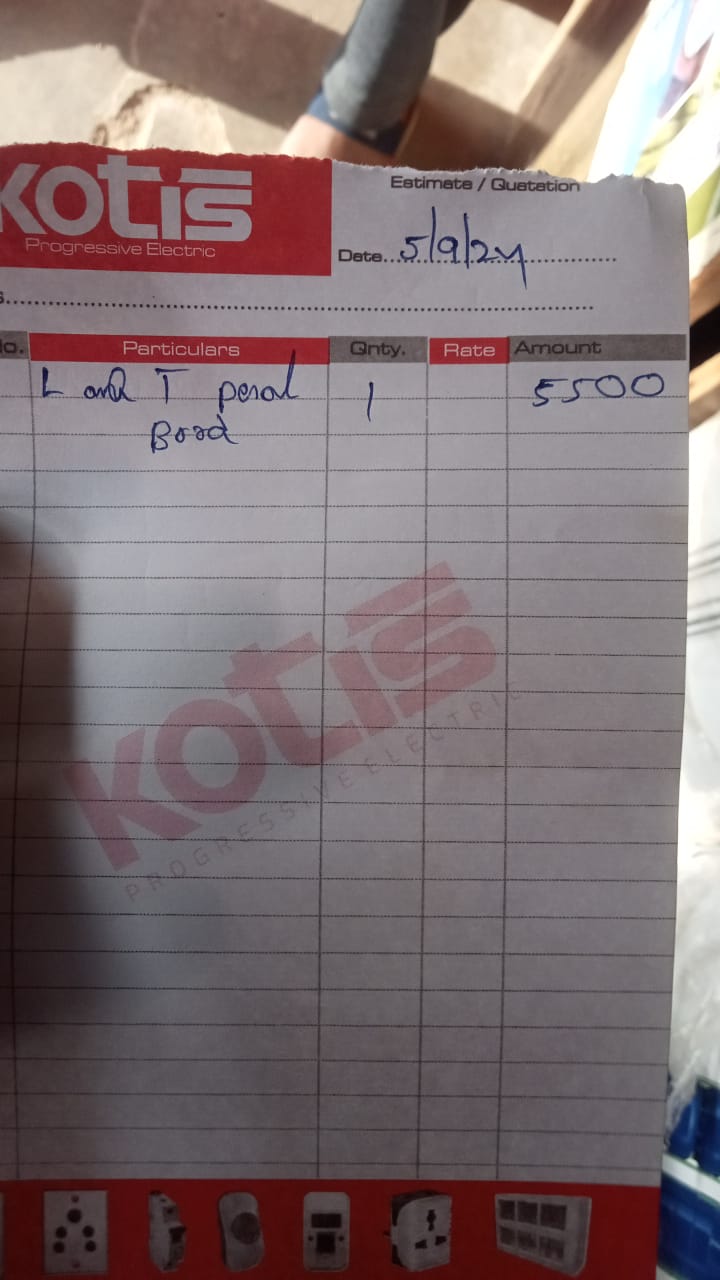 KOTIS
Progressive Electric
Estimate / Quatation
Date... 5/9/24
No. Particulars Qnty. Rate Amount
L and T penal 1 5500
Boad
KOTIS
PROGRESSIVE ELECTRIC